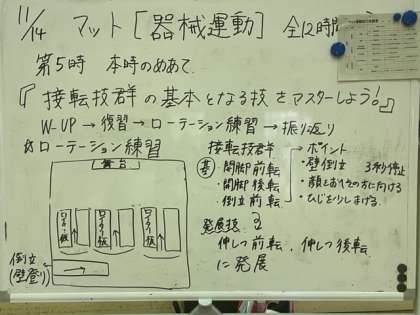 11/14 マット［器械運動］ 全12時間
第5時 本時のめあて
『接転技群の基本となる技をマスターしよう！』
W-UP → 復習 → ローテーション練習 → 振り返り
☆ローテーション練習
舞台
ロイター板
ロイター板
ロイター板
倒立
(壁登り)
接転技群
基
・開脚前転
・開脚後転
・倒立前転
発展技
伸しつ前転、伸しつ後転
に発展
→ポイント
・壁倒立 3秒停止
・顔を
の方に向ける
・ひじを
しまげる